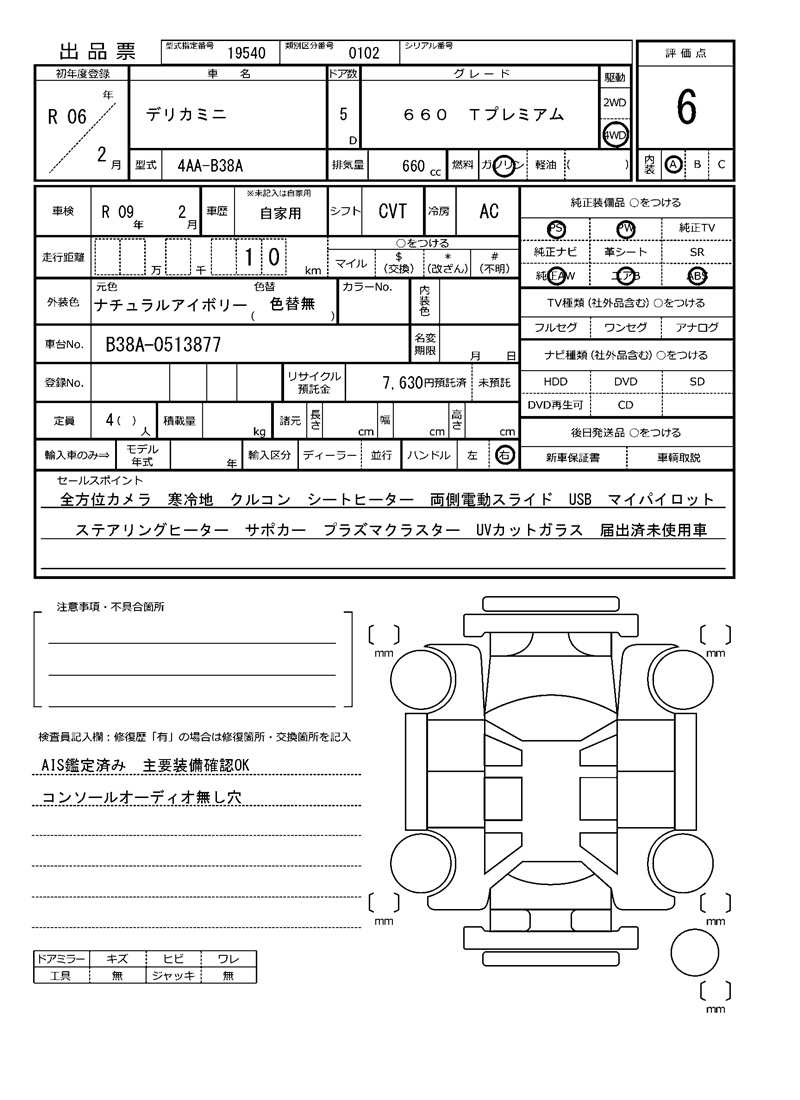 出品票 型式指定番号 19540 類別区分番号 0102 シリアル番号
評価点
6
初年度登録 車名 ドア数 グレード 駆動
R 06年 2月 デリカミニ 5 D 660 Tプレミアム 2WD 4WD
型式 4AA-B38A 排気量 660 cc 燃料 ガソリン 軽油 ( ) 内装 A B C
車検 R 09年 2月 車歴 ※未記入は自家用 自家用 シフト CVT 冷房 AC
走行距離 万 千 1 0 km ○をつける
マイル $(交換) *(改ざん) #(不明)
外装色 元色 ナチュラルアイボリー 色替 ( 色替無 ) カラーNo. 内装色
車台No. B38A-0513877 名変期限 月 日
登録No. リサイクル預託金 7,630円預託済 未預託
定員 4( )人 積載量 kg 諸元 長さ cm 幅 cm 高さ cm
輸入車のみ⇒ モデル年式 年 輸入区分 ディーラー 並行 ハンドル 左 右
純正装備品 ○をつける
PS PW 純正TV
純正ナビ 革シート SR
純正AW エアB ABS
TV種類(社外品含む) ○をつける
フルセグ ワンセグ アナログ
ナビ種類(社外品含む) ○をつける
HDD DVD SD
DVD再生可 CD
後日発送品 ○をつける
新車保証書 車輌取説
セールスポイント
全方位カメラ 寒冷地 クルコン シートヒーター 両側電動スライド USB マイパイロット
ステアリングヒーター サポカー プラズマクラスター UVカットガラス 届出済未使用車
注意事項・不具合箇所
検査員記入欄:修復歴「有」の場合は修復箇所・交換箇所を記入
AIS鑑定済み 主要装備確認OK
コンソールオーディオ無し穴
ドアミラー キズ ヒビ ワレ
工具 無 ジャッキ 無
mm mm
mm mm
mm